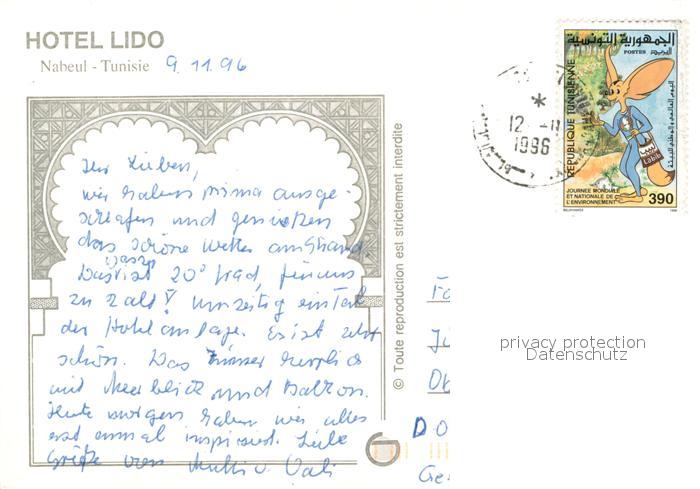 HOTEL LIDO
Nabeul - Tunisie 9.11.96
Ihr Lieben,
wir haben prima ausge-
schlafen und genießen
das schöne Wetter am Strand.
Das ist 20° Grad, für uns
zu kalt!
der Hotelanlage. Es ist sehr
schön. Das Zimmer
mit Meerblick und Balkon.
Heute morgen haben wir alles
erst einmal inspiziert. Liebe
Grüße von Mutti u. Vati
© Toute reproduction est strictement interdite
الجمهورية التونسية
POSTES البريد
REPUBLIQUE TUNISIENNE
Labib
JOURNEE MONDIALE
ET NATIONALE DE
L'ENVIRONNEMENT
390
12 -11
1996
privacy protection
Datenschutz
D